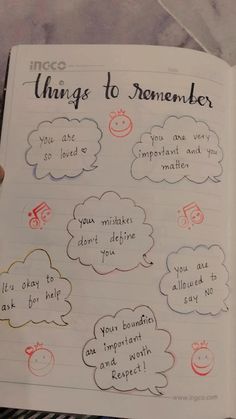 INGCO
things to remember
you are
so loved
you are very
important and you
matter
your mistakes
don't define
you
It's okay to
ask for help
you are
allowed to
say NO
your boundries
are important
and worth
Respect!
www.ingco.com